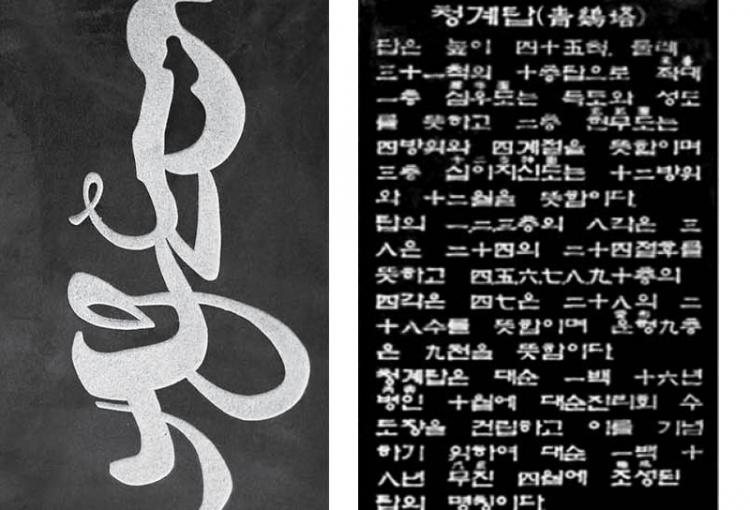 청계탑(靑鷄塔)
탑은 높이 四十五척, 둘레
三十一척의 十층탑으로
一층 심우도는 득도와 성도
를 뜻하고 二층 현무도는
四방위와 四계절을 뜻함이며
三층 십이지신도는 十二방위
와 十二월을 뜻함이다
탑의 一,二,三층의 八각은 三
八은 二十四의 二十四절후를
뜻하고 四,五,六,七,八,九,十층의
四각은 四七은 二十八의 二
十八수를 뜻함이며 九층
은 九천을 뜻함이다
청계탑은 대순 一백 十六년
병인 十월에 대순진리회 수
도장을 건립하고 이를 기념
하기 위하여 대순 一백 十
八년 무진 四월에 조성된
탑의 명칭이다